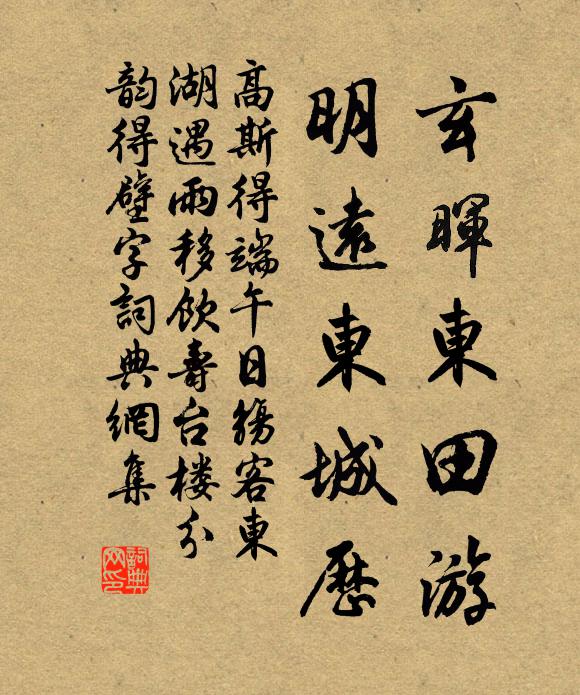 玄暉東田游
明遠東城歷
高斯得端午日觴客東
湖遇雨移飲壽台楼分
韵得壁字詞典網集
詞典
网印